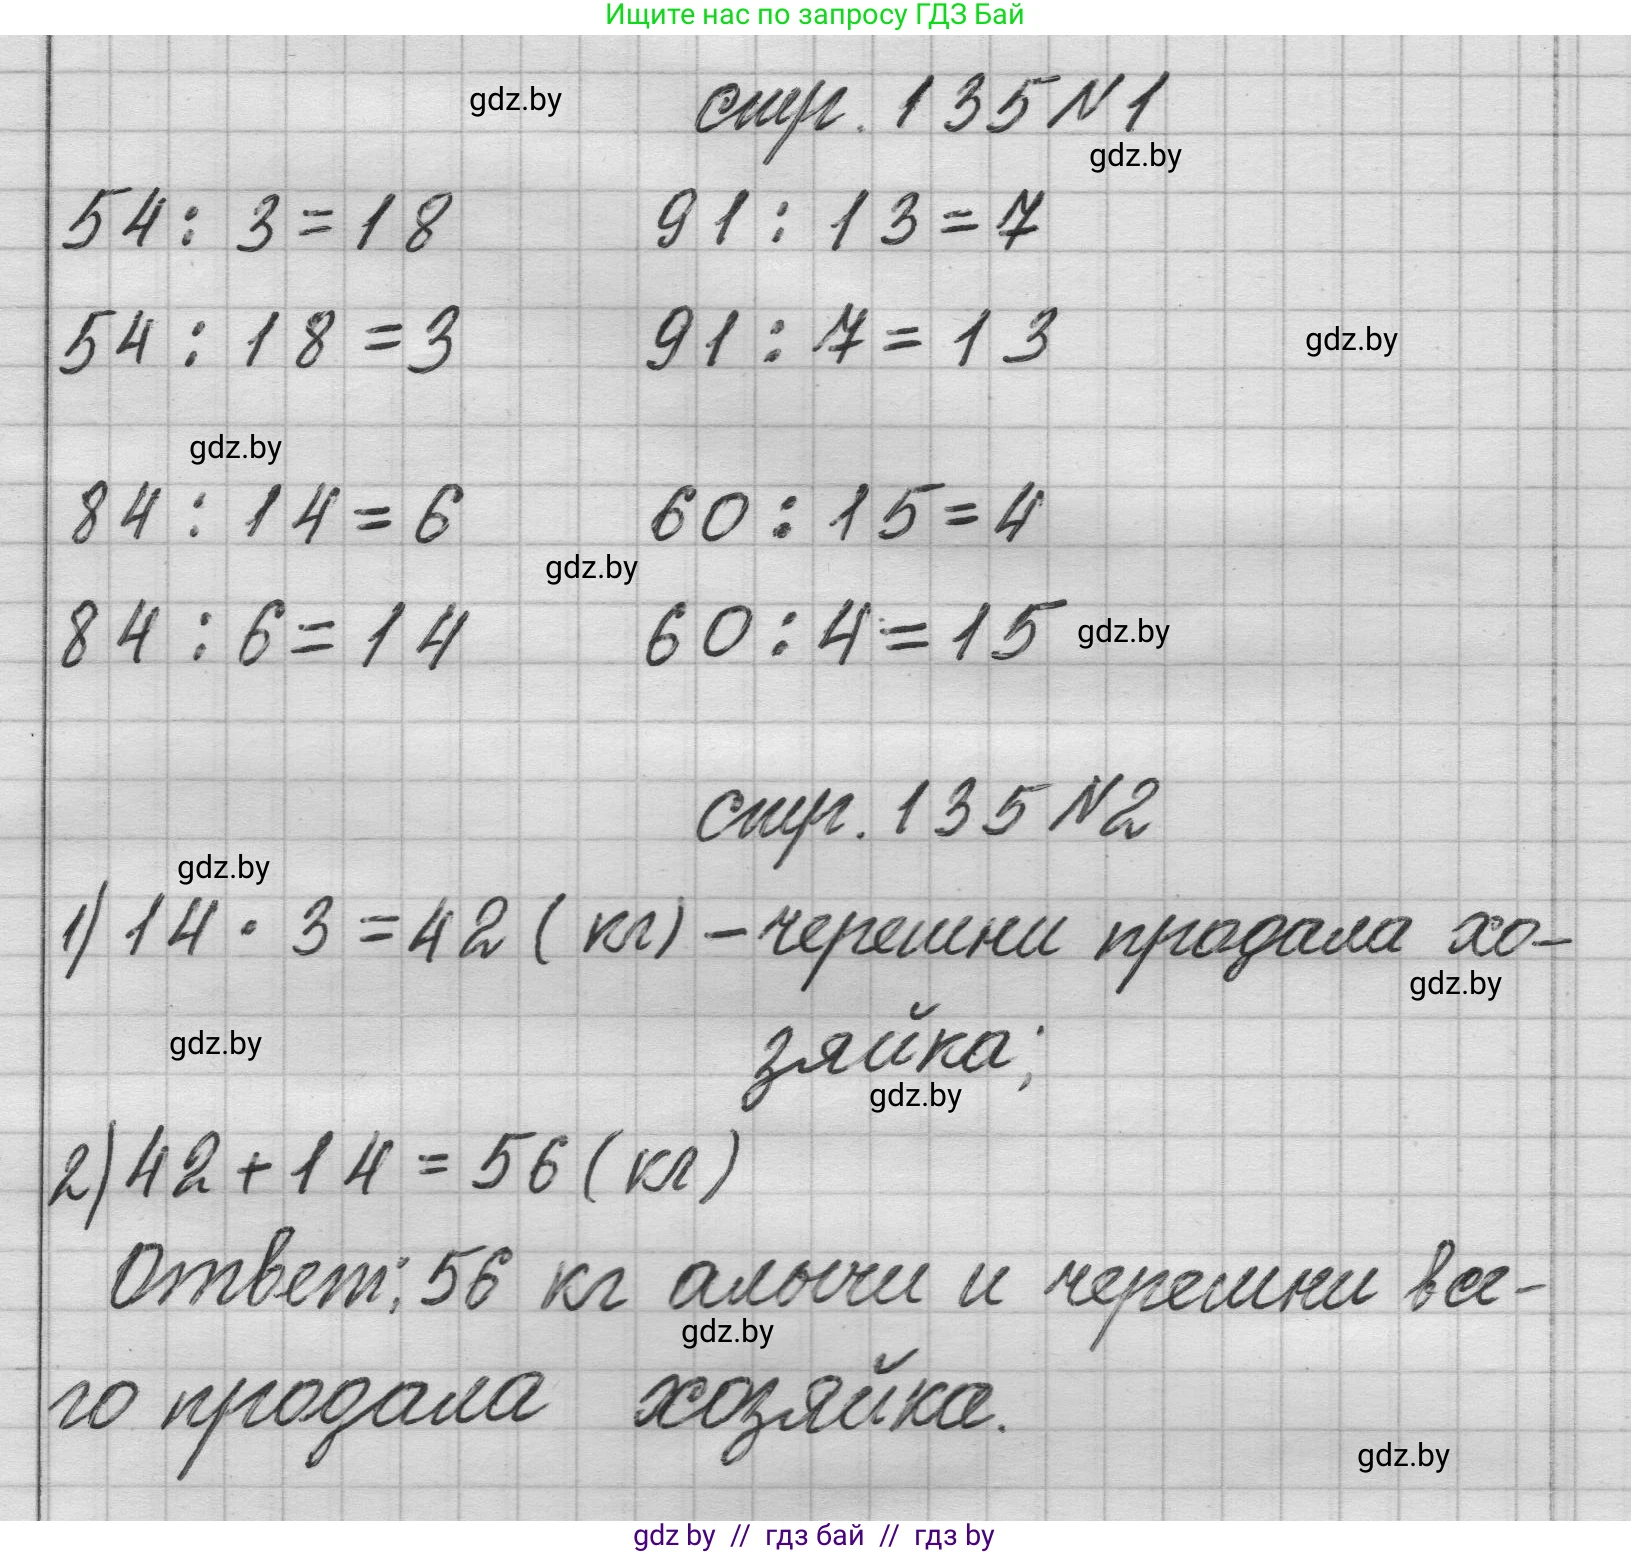 Ищите нас по запросу ГДЗ Бай
gdz.by стр. 135 N1
gdz.by
54 : 3 = 18 91 : 13 = 7
54 : 18 = 3 91 : 7 = 13 gdz.by
gdz.by
84 : 14 = 6 60 : 15 = 4
gdz.by
84 : 6 = 14 60 : 4 = 15 gdz.by
стр. 135 N2
gdz.by
1) 14 · 3 = 42 (кг) – черешни продала хо-
gdz.by
gdz.by зяйка;
gdz.by
2) 42 + 14 = 56 (кг)
Ответ: 56 кг алычи и черешни все-
gdz.by
го продала хозяйка.
gdz.by
gdz by // гдз бай // гдз by